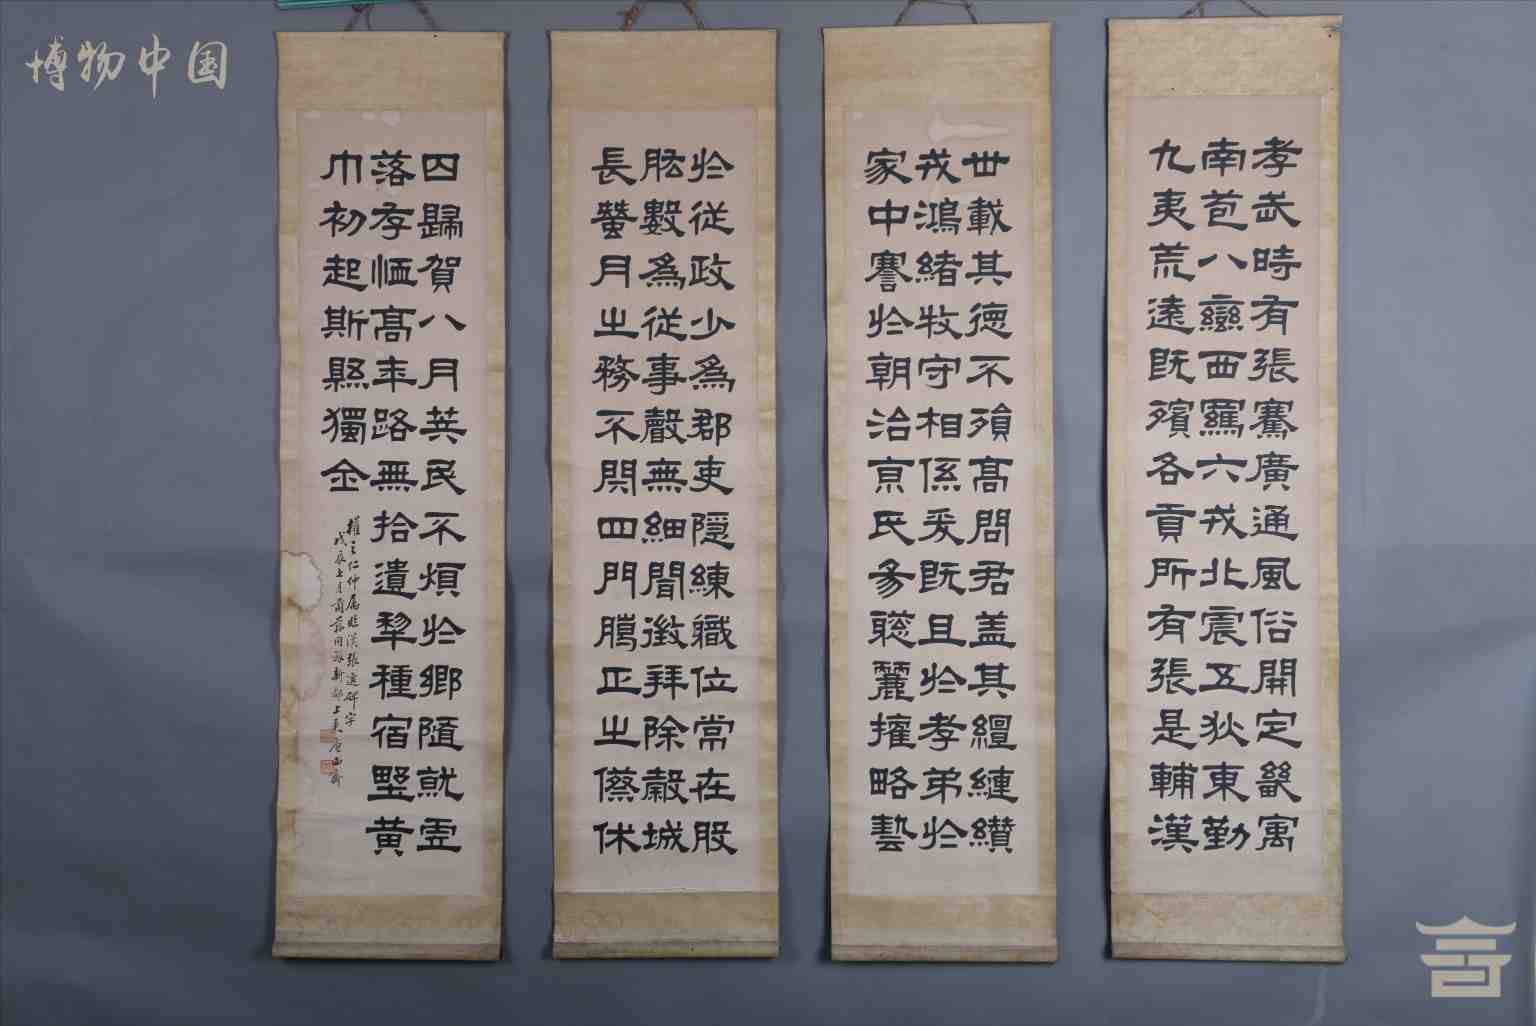 博物中国
孝武時有張騫廣通風俗開定畿寓
南苞八蠻西羈六戎北震五狄東勤
九夷荒遠既殯各貢所有張是輔漢
世載其德不殞高問君盖其纏縺纘
戎鴻緒牧守相係爰既且於孝弟於
家中謇於朝治京氏易聦麗擁略藝
於從政少為郡吏隱練職位常在股
肱數為從事聲無細聞徴拜除穀城
長蠶月之務不閉四門臈正之僚休
囚歸賀八月筭民不煩於鄉隨就虛
落存恤高年路無拾遺犁種宿野黄
巾初起斯縣獨全
仁仲属臨漢張遷碑字
戊辰七月